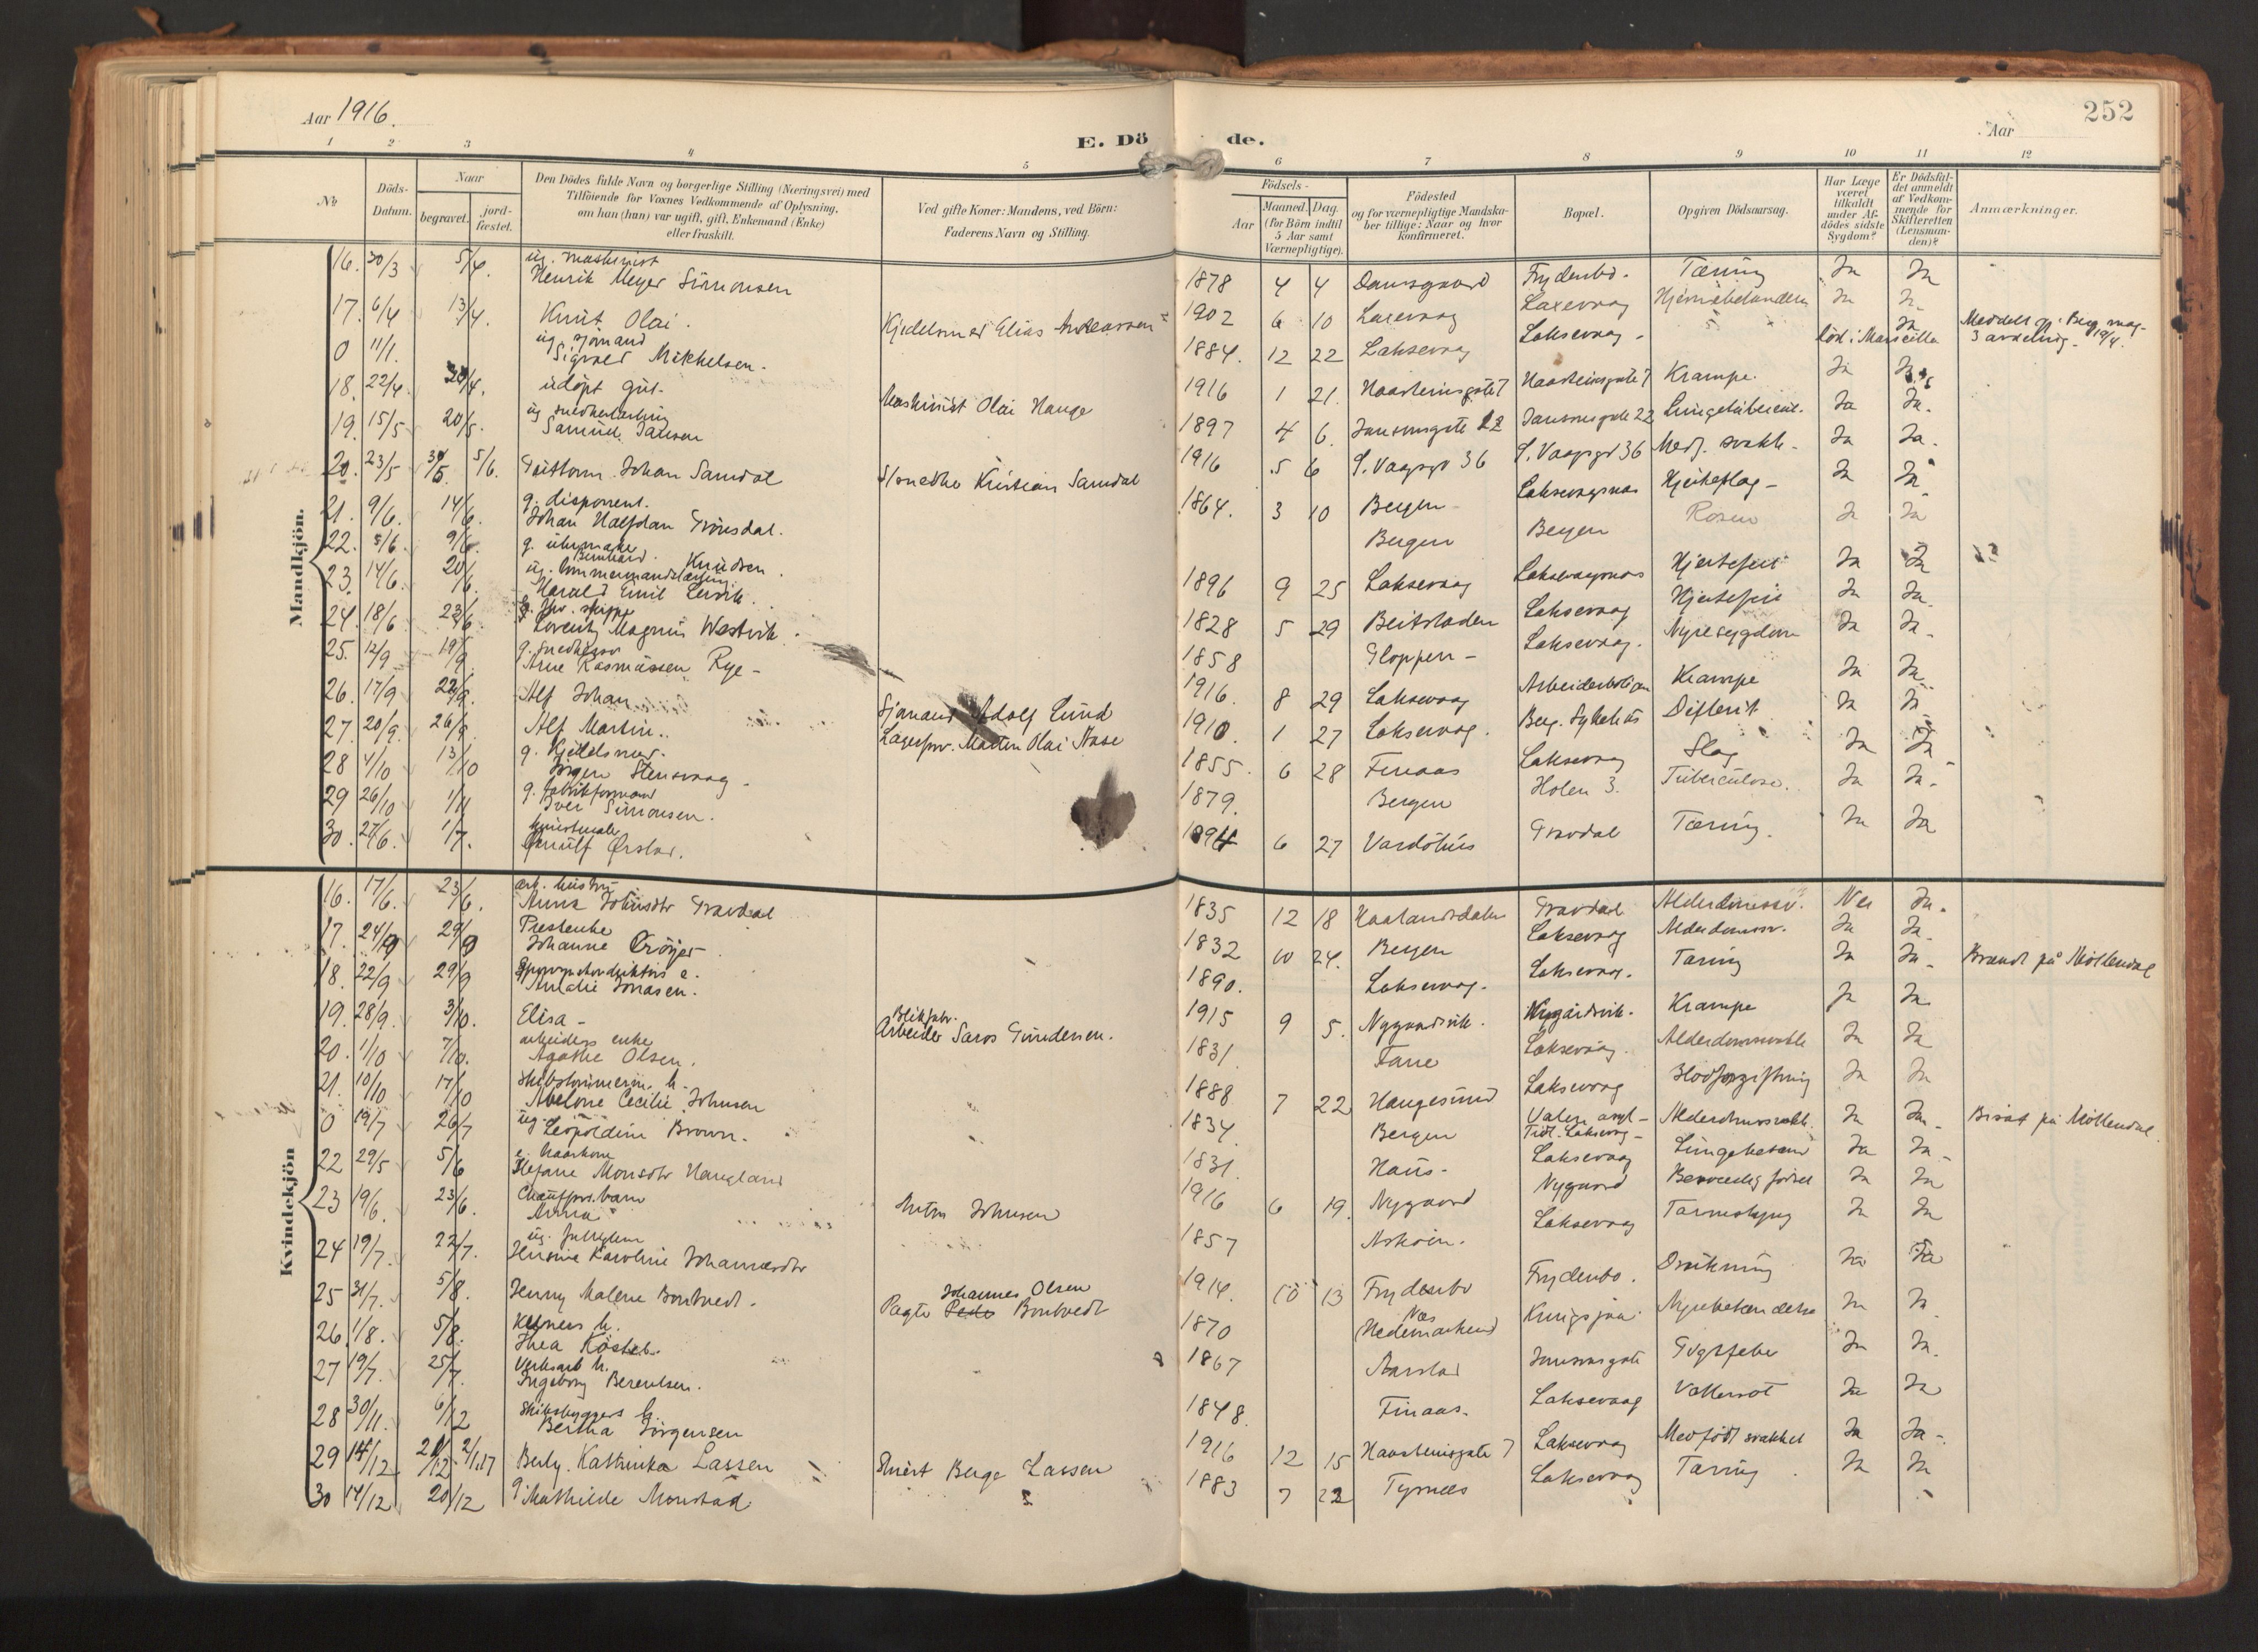 252
Aar 1916.
E. Dö de.
Aar
1 2 3 4 5 6 7 8 9 10 11 12
No
Döds-Datum.
Naar
begravet.
jord-fæstet.
Den Dödes fulde Navn og borgerlige Stilling (Næringsvei) med
Tilföiende for Voxnes Vedkommende af Oplysning,
om han (hun) var ugift, gift, Enkemand (Enke)
eller fraskilt.
Ved gifte Koner: Mandens, ved Börn:
Faderens Navn og Stilling.
Födsels-
Aar
Maaned. Dag.
(for Börn indtil
5 Aar samt
Værnepligtige).
Födested
og for værnepligtige Mandska-
ber tillige: Naar og hvor
konfirmeret.
Bopæl.
Opgiven Dödsaarsag.
Har Læge
været
tilkaldt
under Af-
dödes sidste
Sygdom?
Er Dödsfal-
det anmeldt
af Vedkom-
mende for
Skifteretten
(Lensman-
den)?
Anmærkninger.
Mandkjön.
16. 30/3 5/4. ug. maskinist Henrik Meyer Simonsen 1878 4 4 Damsgaard Frydenbo. Tæring Ja Ja
17. 6/4 13/4. Knut Olai. Kjedelsmed Elias Andreassen 1902 6 10 Laxevaag Laxevaag Hjernebetændelse Ja Ja
0 11/1. ug sjömand Sigvald Mikkelsen. 1884. 12 22 Laksevaag Laksevaag. död i Marseille Ja Meddelt 3 avdeling. 19/4.
18. 22/4 30/4. udöpt gut. Maskinist Olai Hauge 1916 1 21. Haasteinsgate 7 Haasteinsgate 7 Krampe. Ja Ja
19. 15/5 20/5. ug snedkerlærling Samuel Jansen 1897 4 6. Jansonsgate 22 Jansonsgate 22 Lungetubercul. Ja Ja.
20. 23/5 30/5. 5/6. Guttorm Johan Samdal Snedker Kristian Samdal 1916 5 6 S. Vaagsgt 36 S. Vaagsgt 36 Medf. svakh. Ja Ja.
21. 9/6. 14/6. g. disponent. Johan Halfdan Grönsdal. 1864. 3 10 Bergen Laksevaagnes Hjerteslag Ja Ja
22. 5/6 9/6. g. uhrmaker Bernhard Knudsen. Bergen Bergen Rosen Ja Ja
23. 14/6. 20/6. ug. tømmermandslærling Harald Emil Lervik. 1896 9 25 Laksevaag Laksevaagnes Hjertefeil Ja Ja
24. 18/6 23/6 Lorentz Magnus Westvik. 1828 5 29 Beitstaden Laksevaag Hjertefeil Ja Ja.
25. 12/9 19/9 g. snedkersv Arne Rasmussen Rye 1858 Gloppen Laksevaag. Nyresygdom Ja Ja.
26. 17/9 22/9. Alf Johan Sjømand Adolf Lund 1916. 8 29 Laksevaag Arbeiderboligen Krampe Ja Ja
27. 20/9. 26/9 Alf Martin. Lagerfor. Martin Olai Aase 1910. 1 27 Laksevaag. Berg. Sykehus Difterit Ja Ja
28 4/10 13/10 g. Kjedelsmed. Jörgen Stensvaag 1855. 6 28 Finaas Laksevaag Slag Ja Ja
29 26/10 1/11 g. fabrikformand Iver Simonsen. 1879. Bergen Holen 3. Tuberculose. Ja Ja.
30. 27/6. 1/7. kunstmaler Ørstad. 1894 6 27 Vardöhus Gravdal Tæring. Ja Ja
Kvindekjön
16. 17/6. 23/6. arb. hustru Anna Johnsdtr Gravdal 1835 12 18 Haalandsdalen Gravdal Alderdomssv. Nei Ja.
17. 24/9 29/9 Prestenke Johanne Kröyer 1832 10 24. Bergen Laksevaag Alderdomssv. Ja Ja.
18. 22/9 29/9 Amalie Jonasen. 1890. Laksevaag Laksevaag. Tæring Ja Ja Brændt på Möllendal
19. 28/9. 3/10. Elisa Blikfabr. Arbeider Saros Gundersen. 1915 9 5. Nygaardsvik. Nygårdsvik. Krampe Ja Ja
20. 1/10 7/10. arbeiders enke Agathe Olsen. 1831. Fane Laksevaag. Alderdomssvakh Ja Ja
21. 10/10 17/10 Skibstömmerm. h. Abelone Cecilie Johnsen 1888 7 22 Haugesund Laksevaag Blodforgiftning Ja Ja
0 19/7 26/7 ug Leopoldine Brown. 1834. Bergen Valen asyl Tidl. Laksevaag Alderdomssvakh. Ja Ja Bisat på Möllendal
22 29/5 5/6 Stefane Monsdtr Haugland 1831. Haus Laksevaag Lungebetænd Ja Ja
23 19/6. 23/6. Chaufförs barn Anna Anton Johnsen 1916 6 19. Nygaard Nygaard fødsel Ja Ja
24 19/7. 22/7. ug. Hensine Karoline Johannesdtr 1857 Askøen. Laksevaag Ja Ja
25 31/7. 5/8. Jenny Malene Bontvedt. Johannes Olsen Bontvedt 1914. 10 13 Frydenbo Frydenbo. Drukning Ja Ja
26. 1/8. 5/8. Kelners h. Thea Köster. 1870 Næs Hedemarken Kringsjaa Nyrebetændelse Ja Ja
27 19/7. 25/7. Verksarb h. Ingeborg Berentsen. 1867 Aarstad Jansonsgate Gigtfeber Ja Ja.
28 30/11. 6/12 Skibsbyggers h. Bertha Jörgensen 1848. Finaas. Laksevaag Vattersot Ja Ja
29 14/12 21/12. 2/1.17 Berly. Kathinka Lassen Berge Lassen 1916 12 15 Haasteinsgate 7 Laksevaag Medfödt svakhet Ja Ja
30 14/12 20/12 Mathilde Monstad 1883 7 22 Tysnes Laksevaag Tæring. Ja Ja